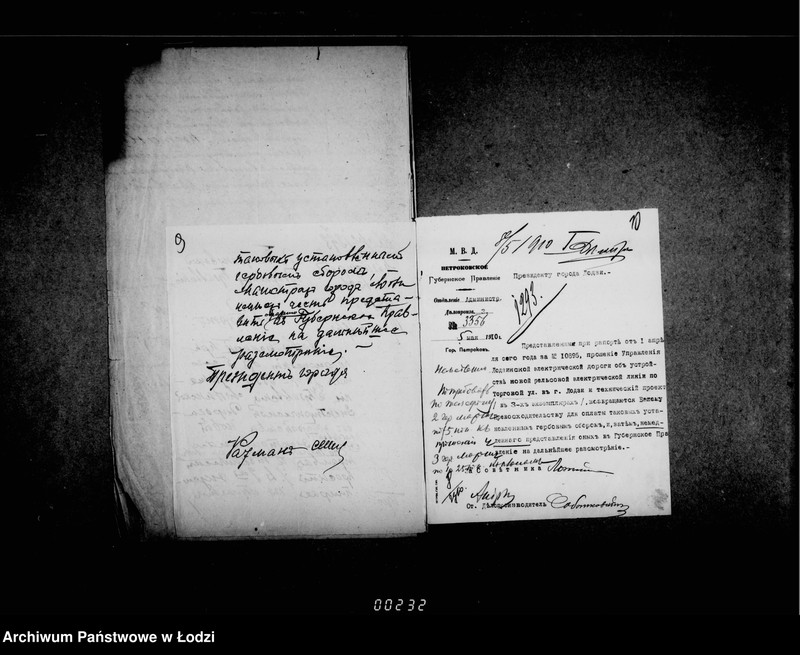 9
таковыхъ установленнымъ
гербовымъ сборомъ,
Магистратъ города Лодзи
вить въ Губернское Прав-
леніе на дальнѣйшее
разсмотрѣніе.
Президентъ города
10
8/5 1910
М. В. Д.
ПЕТРОКОВСКОЕ
Губернское Правленіе
Президенту города Лодзи.-
Отдѣленіе Администр.
Дѣлопроизв.
№ 3356
1293
5 мая 1910 г.
Гор. Петроковъ.
Представленныя при рапортѣ отъ 1 апрѣ
ля сего года за № 10695, прошеніе Управленія
Лодзинской электрической дороги объ устрой
ствѣ новой рельсовой электрической линіи по
торговой ул. въ г. Лодзи и техническій проектъ
/ въ 3-хъ экземплярахъ /, возвращаются Вашему
Превосходительству для оплаты таковыхъ уста-
новленнымъ гербовымъ сборомъ, и, затѣмъ, немед-
леннаго представленія оныхъ въ Губернское Пра
вленіе на дальнѣйшее разсмотрѣніе.-
Совѣтника
Ст. Дѣлопроизводитель
00232
Archiwum Państwowe w Łodzi